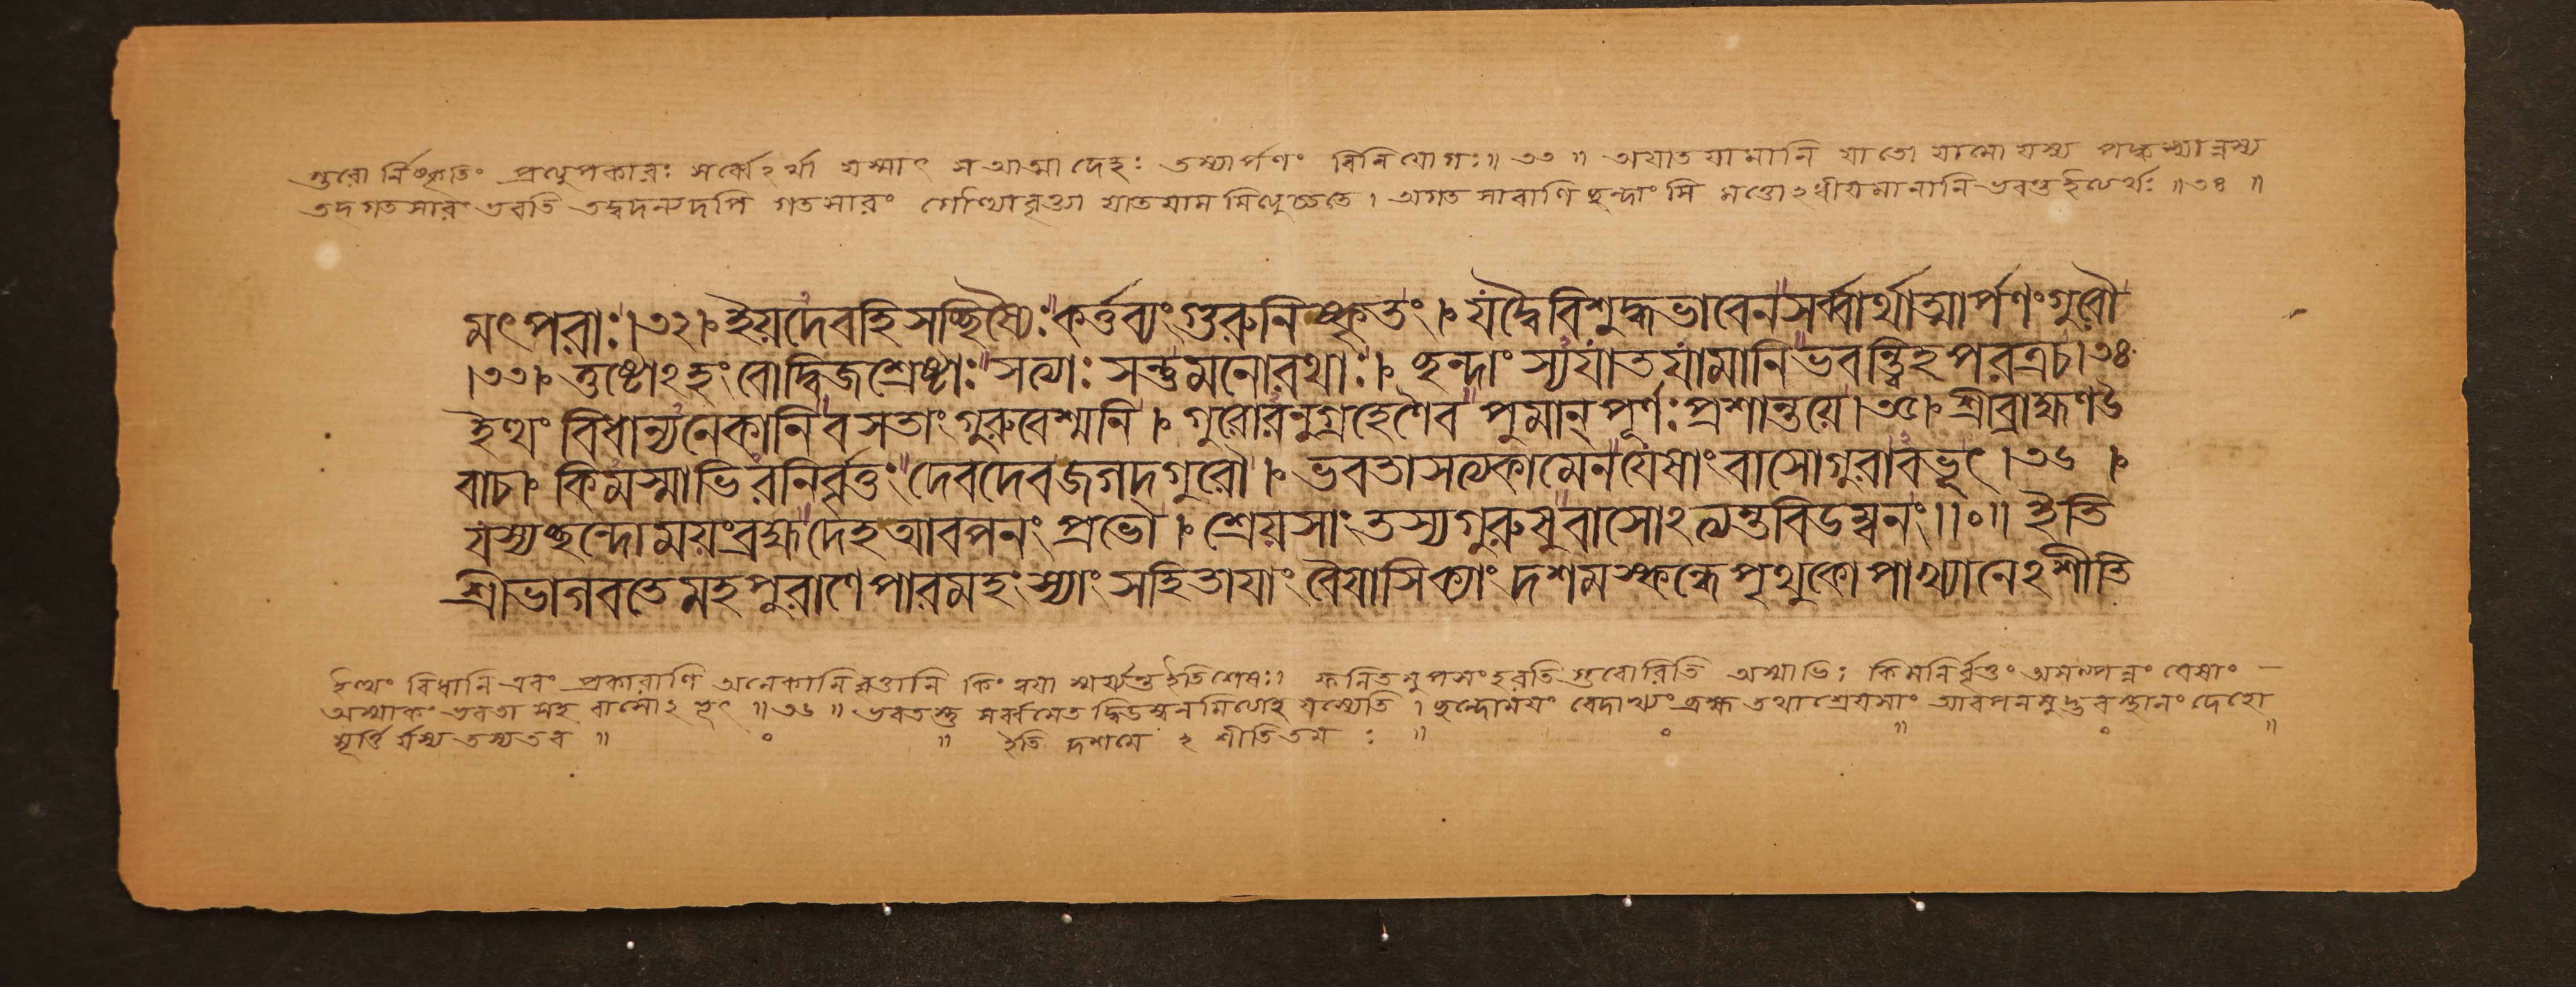 গুরো র্নিষ্কৃতিং প্রত্যুপকারঃ সর্ব্বোঽর্থা যস্মাৎ স আত্মা দেহঃ তস্যার্পণং বিনিযোগঃ॥ ৩৩ ॥ অযাত যামানি যাতো যামো যস্য পক্কস্যান্নস্য
তদ গতসারং ভবতি তদ্বদন্যদপি গতসারং গৌণ্যাবৃত্ত্যা যাতযাম মিত্যুচ্যতে । অগত সারাণি ছন্দাং সি মত্তোঽধীযমানানি ভবন্তু ইত্যর্থঃ ॥৩৪ ॥
মৎপরাঃ।৩২। ইয়দেবহিসচ্ছিষ্যৈঃকর্ত্তব্যংগুরুনিষ্কৃতং। যদ্বৈবিশুদ্ধভাবেনসর্ব্বার্থাত্মার্পণংগুরৌ
।৩৩। তুষ্টোঽহংবোদ্বিজশ্রেষ্ঠাঃসত্যাঃসন্তুমনোরথাঃ। ছন্দাংস্যযাতযামানিভবন্ত্বিহপরত্রচ।৩৪
ইত্থং বিধান্যনেকানিবসতাংগুরুবেশ্মনি। গুরোরনুগ্রহেণৈব পুমান্ পূর্ণঃপ্রশান্তয়ে।৩৫। শ্রীব্রাহ্মণউ
বাচ। কিমস্মাভিরনির্বৃত্তংদেবদেবজগদ্গুরৌ। ভবতাসত্যকামেনযেষাংবাসোগুরাবভূৎ।৩৬ ।
যস্যচ্ছন্দোময়ংব্রহ্মদেহআবপনং প্রভো। শ্রেয়সাংতস্যগুরুষুবাসোঽত্যন্তবিডম্বনং॥০॥ ইতি
শ্রীভাগবতেমহপুরাণেপারমহংস্যাংসহিতাযাংবৈযাসিক্যাংদশমস্কন্ধেপৃথুকোপাখ্যানেঽশীতি
ইত্থং বিধানি এবং প্রকারাণি অনেকানি বৃত্তানি কিং ত্বযা স্মর্য্যন্ত ইতিশেষঃ। ফলিতমুপসংহরতি গুরোরিতি অস্মাভিঃ কিমনির্বৃত্তং অসম্পন্নং যেষাং
অস্মাকং ভবতা সহ বাসোঽভূৎ ॥৩৬॥ ভবতস্তু সর্ব্বমেত দ্বিডম্বনমিত্যাহ যস্যেতি । ছন্দোমযং বেদাখ্যং ব্রহ্ম তথাশ্রেযসাং আবপনমুদ্ভবস্থানং দেহো
মূর্ত্তি র্যস্য তস্যতব ॥ ০ ॥ ইতি দশমে ঽশীতিতম ঃ ॥ ০ ॥ ০ ॥